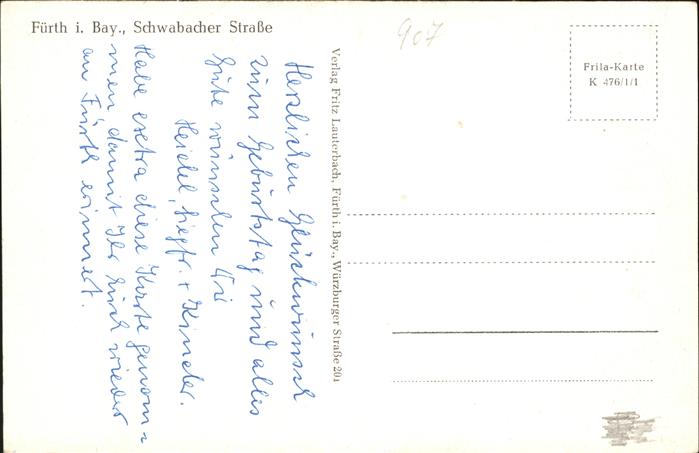 Fürth i. Bay., Schwabacher Straße
907
Frila-Karte
K 476/1/1
Verlag Fritz Lauterbach, Fürth i. Bay., Würzburger Straße 201
Herzlichen Glückwunsch
zum Geburtstag und alles
Gute wünschen
Heidel, Siegfr. + Kinder.
Habe extra diese Karte genom=
men, damit Ihr Euch wieder
an Fürth erinnert.